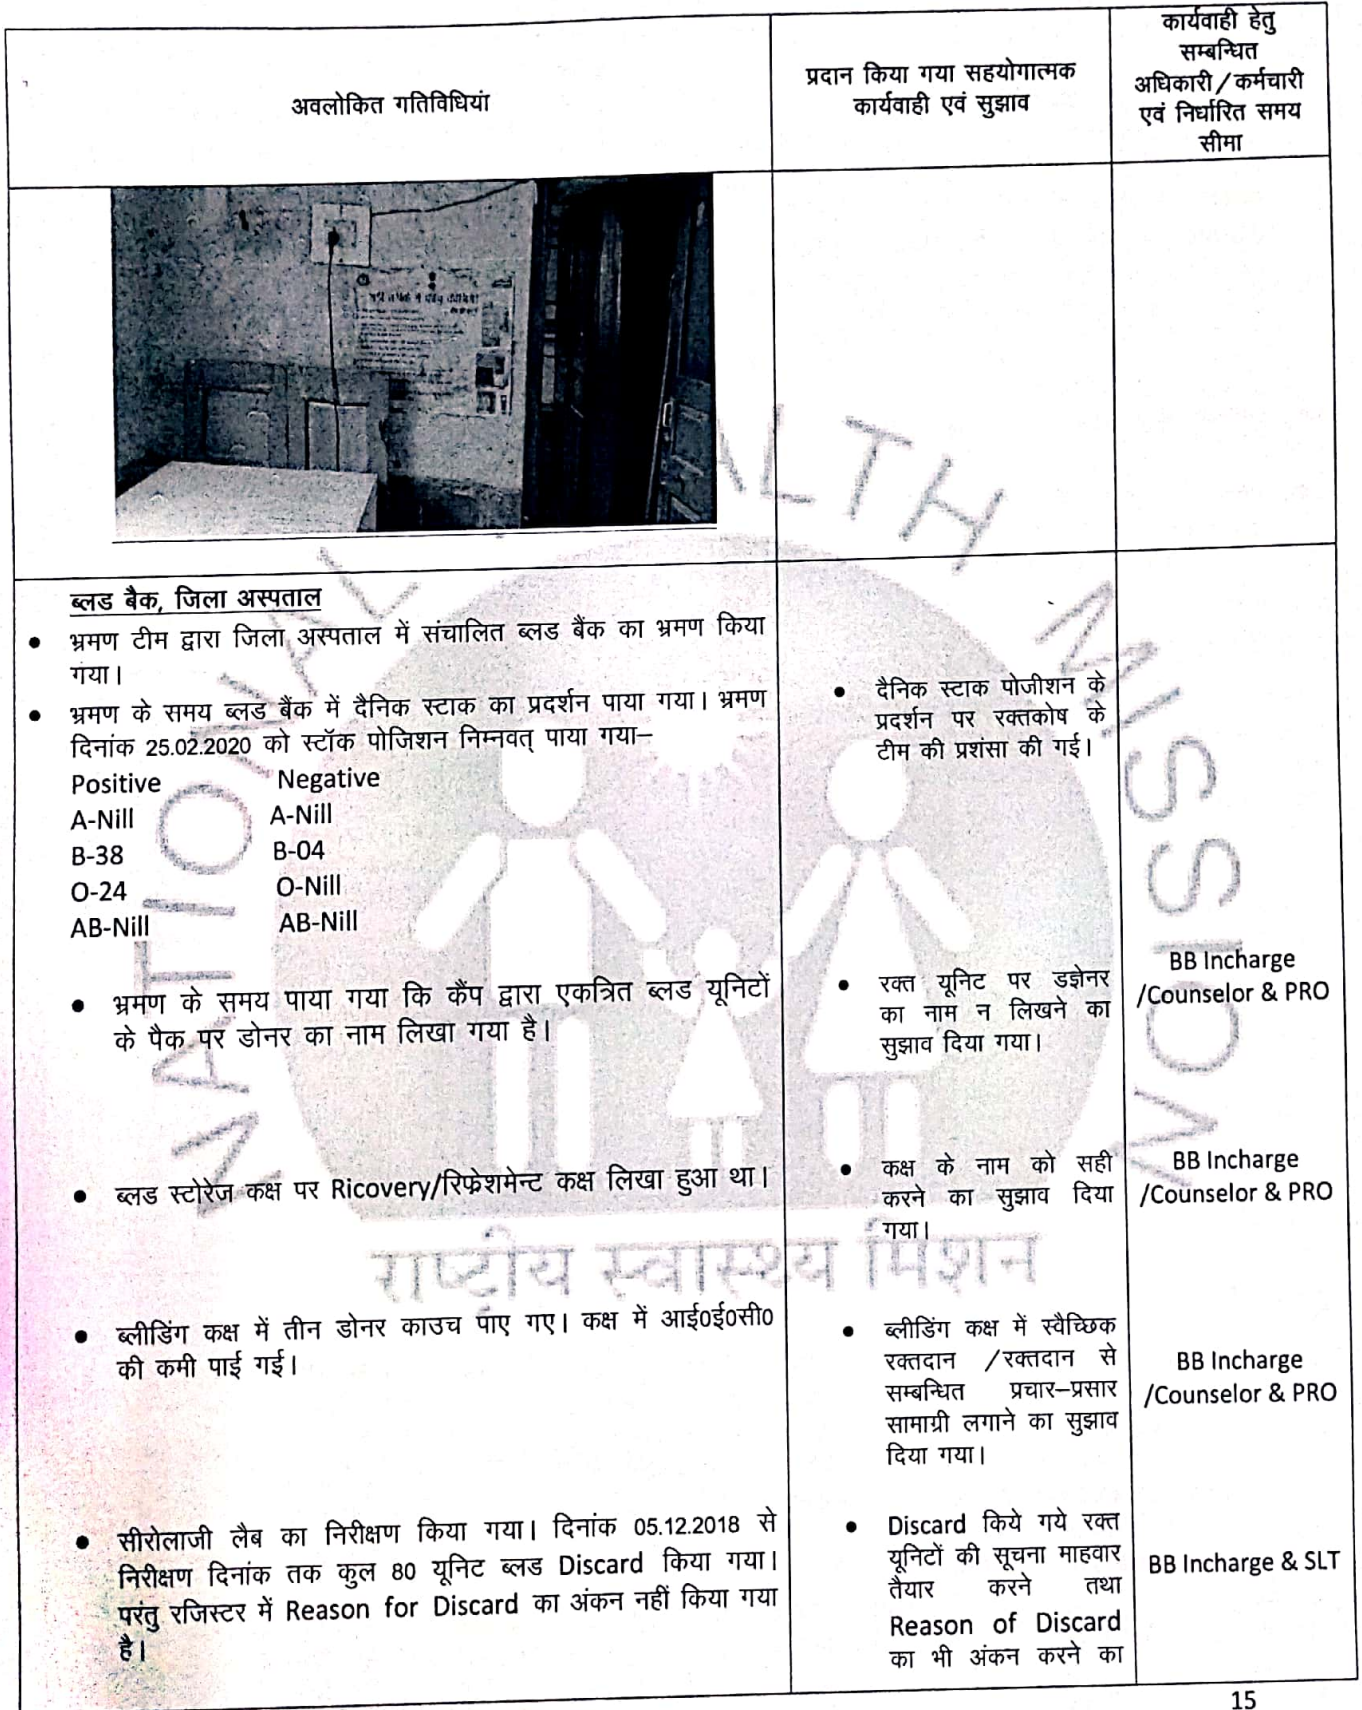 अवलोकित गतिविधियां
प्रदान किया गया सहयोगात्मक
कार्यवाही एवं सुझाव
कार्यवाही हेतु
सम्बन्धित
अधिकारी/कर्मचारी
एवं निर्धारित समय
सीमा
ब्लड बैक, जिला अस्पताल
• भ्रमण टीम द्वारा जिला अस्पताल में संचालित ब्लड बैंक का भ्रमण किया
गया।
• भ्रमण के समय ब्लड बैंक में दैनिक स्टाक का प्रदर्शन पाया गया। भ्रमण
दिनांक 25.02.2020 को स्टॉक पोजिशन निम्नवत् पाया गया–
Positive Negative
A-Nill A-Nill
B-38 B-04
O-24 O-Nill
AB-Nill AB-Nill
• दैनिक स्टाक पोजीशन के
प्रदर्शन पर रक्तकोष के
टीम की प्रशंसा की गई।
• भ्रमण के समय पाया गया कि कैंप द्वारा एकत्रित ब्लड यूनिटों
के पैक पर डोनर का नाम लिखा गया है।
• रक्त यूनिट पर डज्ञेनर
का नाम न लिखने का
सुझाव दिया गया।
BB Incharge
/Counselor & PRO
• ब्लड स्टोरेज कक्ष पर Ricovery/रिफ्रेशमेन्ट कक्ष लिखा हुआ था।
• कक्ष के नाम को सही
करने का सुझाव दिया
गया।
BB Incharge
/Counselor & PRO
• ब्लीडिंग कक्ष में तीन डोनर काउच पाए गए। कक्ष में आई0ई0सी0
की कमी पाई गई।
• ब्लीडिंग कक्ष में स्वैच्छिक
रक्तदान /रक्तदान से
सम्बन्धित प्रचार–प्रसार
सामाग्री लगाने का सुझाव
दिया गया।
BB Incharge
/Counselor & PRO
• सीरोलाजी लैब का निरीक्षण किया गया। दिनांक 05.12.2018 से
निरीक्षण दिनांक तक कुल 80 यूनिट ब्लड Discard किया गया।
परंतु रजिस्टर में Reason for Discard का अंकन नहीं किया गया
है।
• Discard किये गये रक्त
यूनिटों की सूचना माहवार
तैयार करने तथा
Reason of Discard
का भी अंकन करने का
BB Incharge & SLT
NATIONAL HEALTH MISSION
राष्ट्रीय स्वास्थ्य मिशन
15